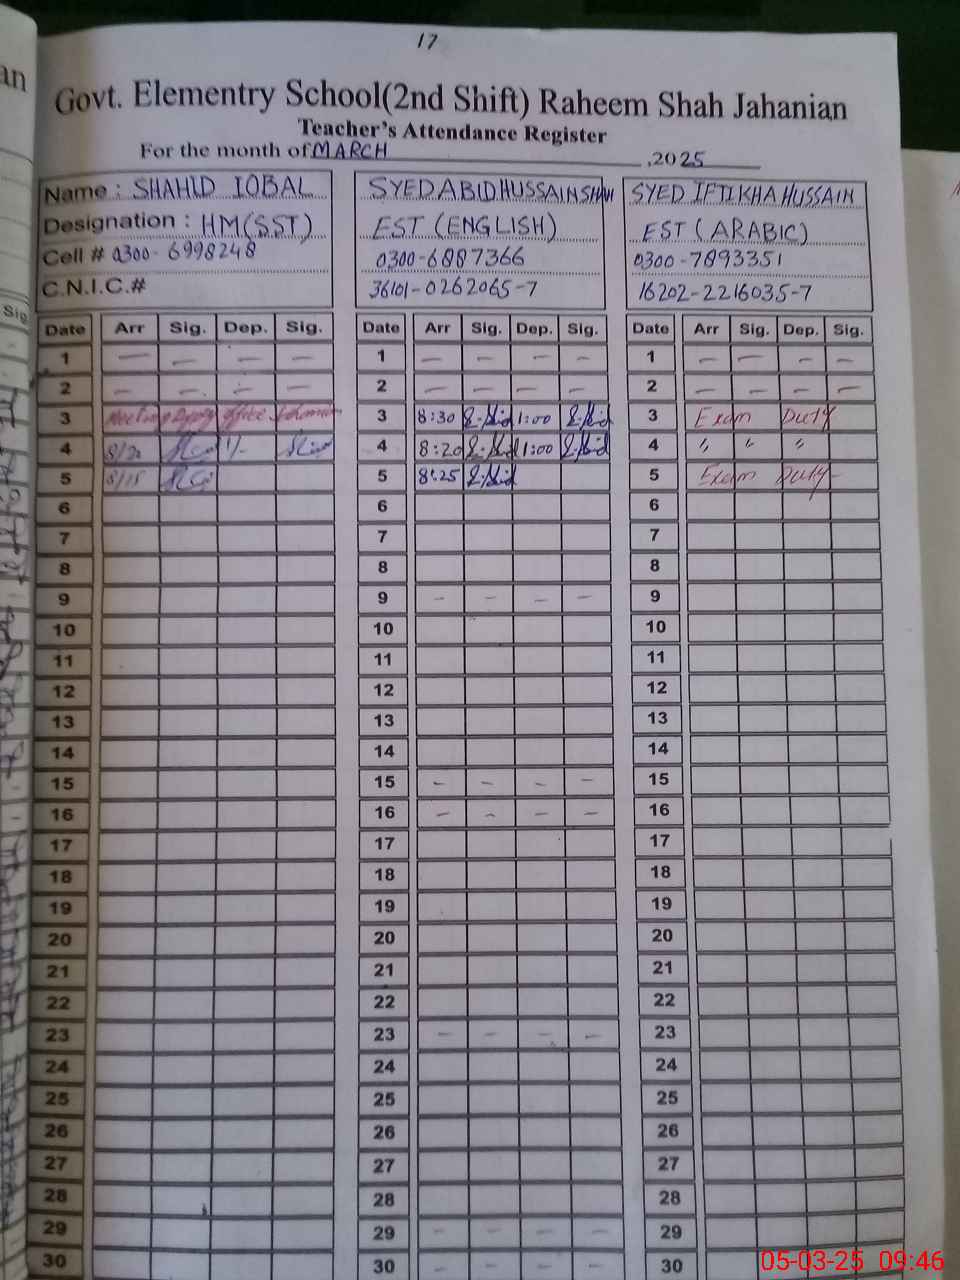 17
Govt. Elementry School(2nd Shift) Raheem Shah Jahanian
Teacher's Attendance Register
For the month of MARCH ,2025
Name : SHAHID IQBAL
Designation : HM(SST)
Cell # 0300-6998248
C.N.I.C.#
SYED ABID HUSSAIN SHAH
EST (ENGLISH)
0300-6887366
36101-0262065-7
SYED IFTIKHA HUSSAIN
EST (ARABIC)
0300-7893351
16202-2216035-7
Date Arr Sig. Dep. Sig. Date Arr Sig. Dep. Sig. Date Arr Sig. Dep. Sig.
1 — — — — 1 — — — — 1 — — — —
2 — — — — 2 — — — — 2 — — — —
3 Meeting Office 3 8:30 1:00 3 Exam Duty
4 8/20 4 8:20 1:00 4 〃 〃 〃
5 8/15 5 8:25 5 Exam Duty
6 6 6
7 7 7
8 8 8
9 9 — — — — 9
10 10 10
11 11 11
12 12 12
13 13 13
14 14 14
15 15 — — — — 15
16 16 — — — — 16
17 17 17
18 18 18
19 19 19
20 20 20
21 21 21
22 22 22
23 23 — — — — 23
24 24 24
25 25 25
26 26 26
27 27 27
28 28 28
29 29 — — — — 29
30 30 — — — — 30
05-03-25 09:46
an
Sig